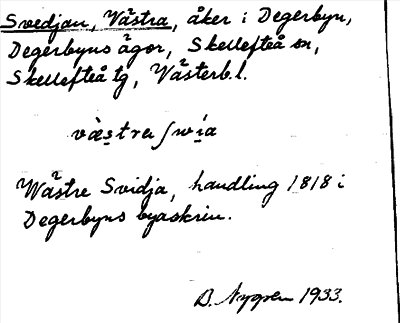 Svedjan, Västra, åker i Degerbyn,
Degerbyns ägor, Skellefteå sn,
Skellefteå tg, Västerb.l.
væ̀stre ʃwía
Wästre Svidja, handling 1818 i
Degerbyns byaskrin.
B. Nygren 1933.